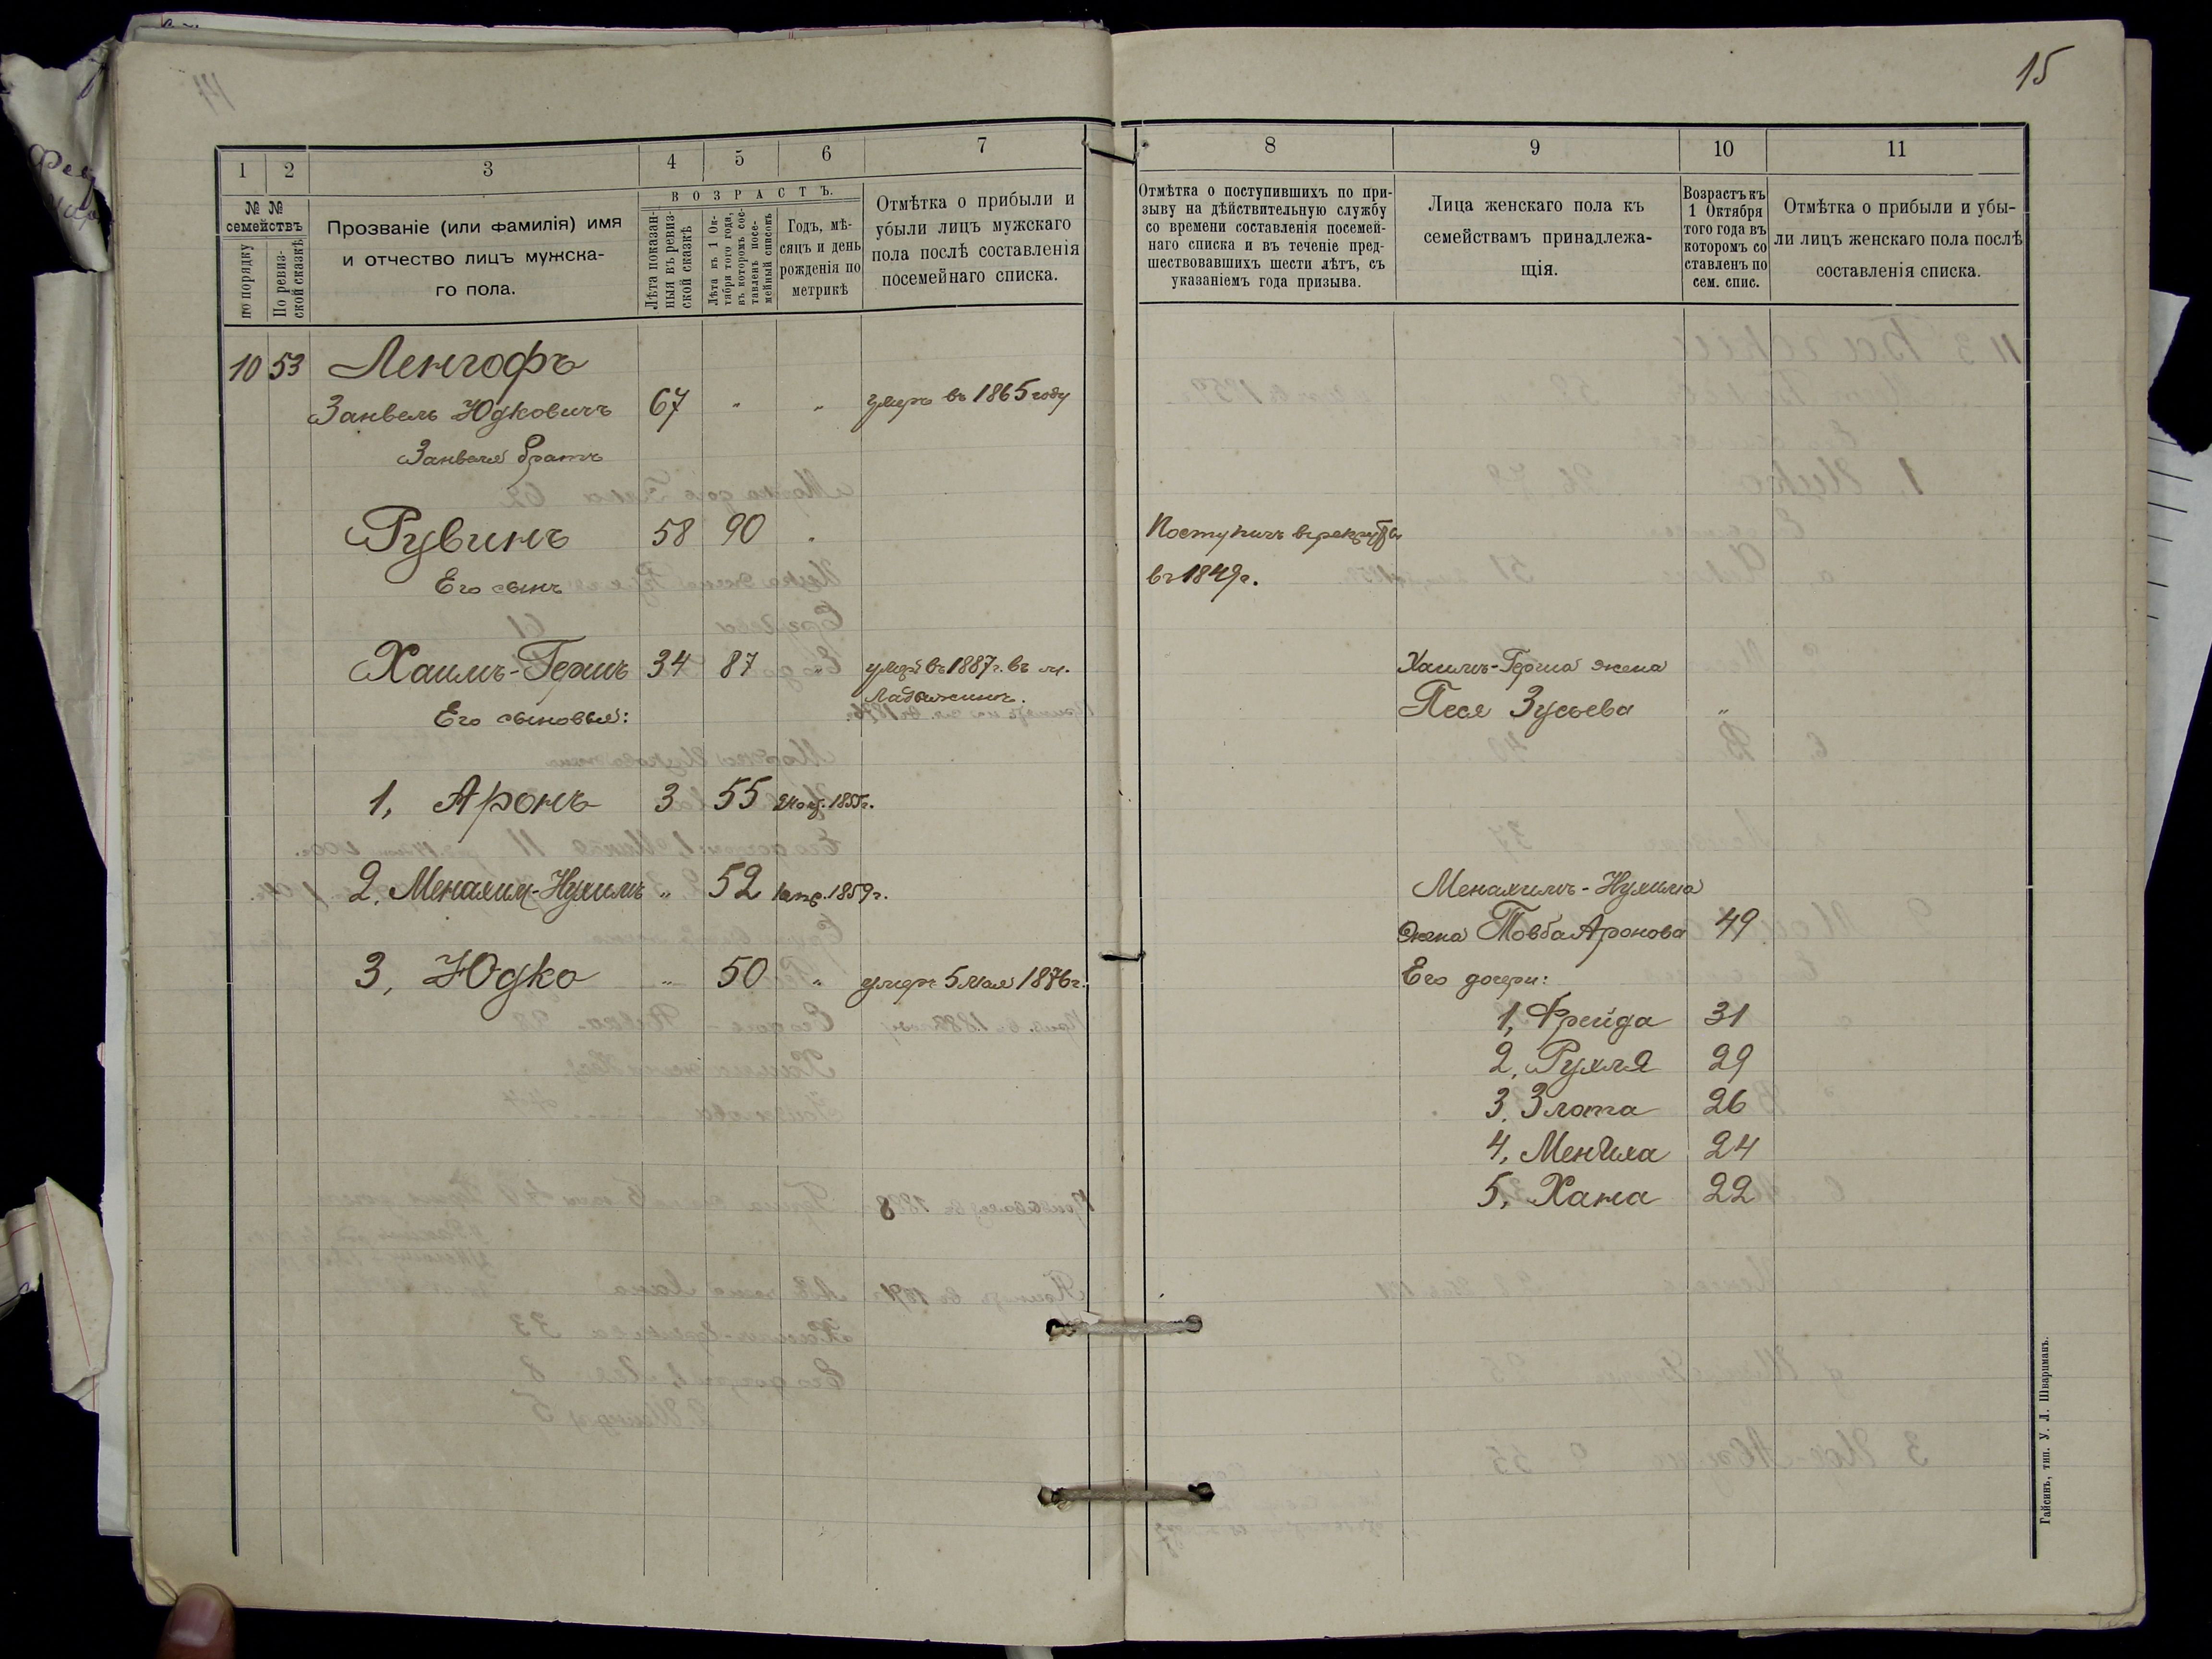 15
1
2
3
4
5
6
7
№ №
семействъ
по порядку
По ревиз-
ской сказкѣ
Прозваніе (или фамилія) имя
и отчество лицъ мужска-
го пола.
ВОЗРАСТЪ.
Лѣта показан-
ныя въ ревиз-
ской сказкѣ
Лѣта къ 1 Ок-
тября того года,
въ которомъ сос-
тавленъ посе-
мейный списокъ
Годъ, мѣ-
сяцъ и день
рожденія по
метрикѣ
Отмѣтка о прибыли и
убыли лицъ мужскаго
пола послѣ составленія
посемейнаго списка.
10 53 Ленгофъ
Занвель Юдковичъ 67 " " умеръ въ 1865 году
Занвеля братъ
Рувинъ 58 90 "
Его сынъ
Хаимъ-Гершъ 34 87 " умеръ въ 1887 г. въ м.
Ладыжинъ.
Его сыновья:
1, Аронъ 3 55 1855 г.
2, Менахим-Нухимъ " 52 1 апр. 1859 г.
3, Юдко " 50 " умеръ 5 мая 1876 г.
8
9
10
11
Отмѣтка о поступившихъ по при-
зыву на дѣйствительную службу
со времени составленія посемей-
наго списка и въ теченіе пред-
шествовавшихъ шести лѣтъ, съ
указаніемъ года призыва.
Лица женскаго пола къ
семействамъ принадлежа-
щія.
Возрастъ къ
1 Октября
того года въ
которомъ со
ставленъ по
сем. спис.
Отмѣтка о прибыли и убы-
ли лицъ женскаго пола послѣ
составленія списка.
Поступилъ в рекруты
въ 1849 г.
Хаимъ-Герша жена
Песя Зусьева "
Менахимъ-Нухима
жена Товба Аронова 49
Его дочери:
1, Фрейда 31
2, Рухля 29
3, Злота 26
4, Меніха 24
5, Хана 22
Гайсинъ, тип. У. Л. Шварцманъ.